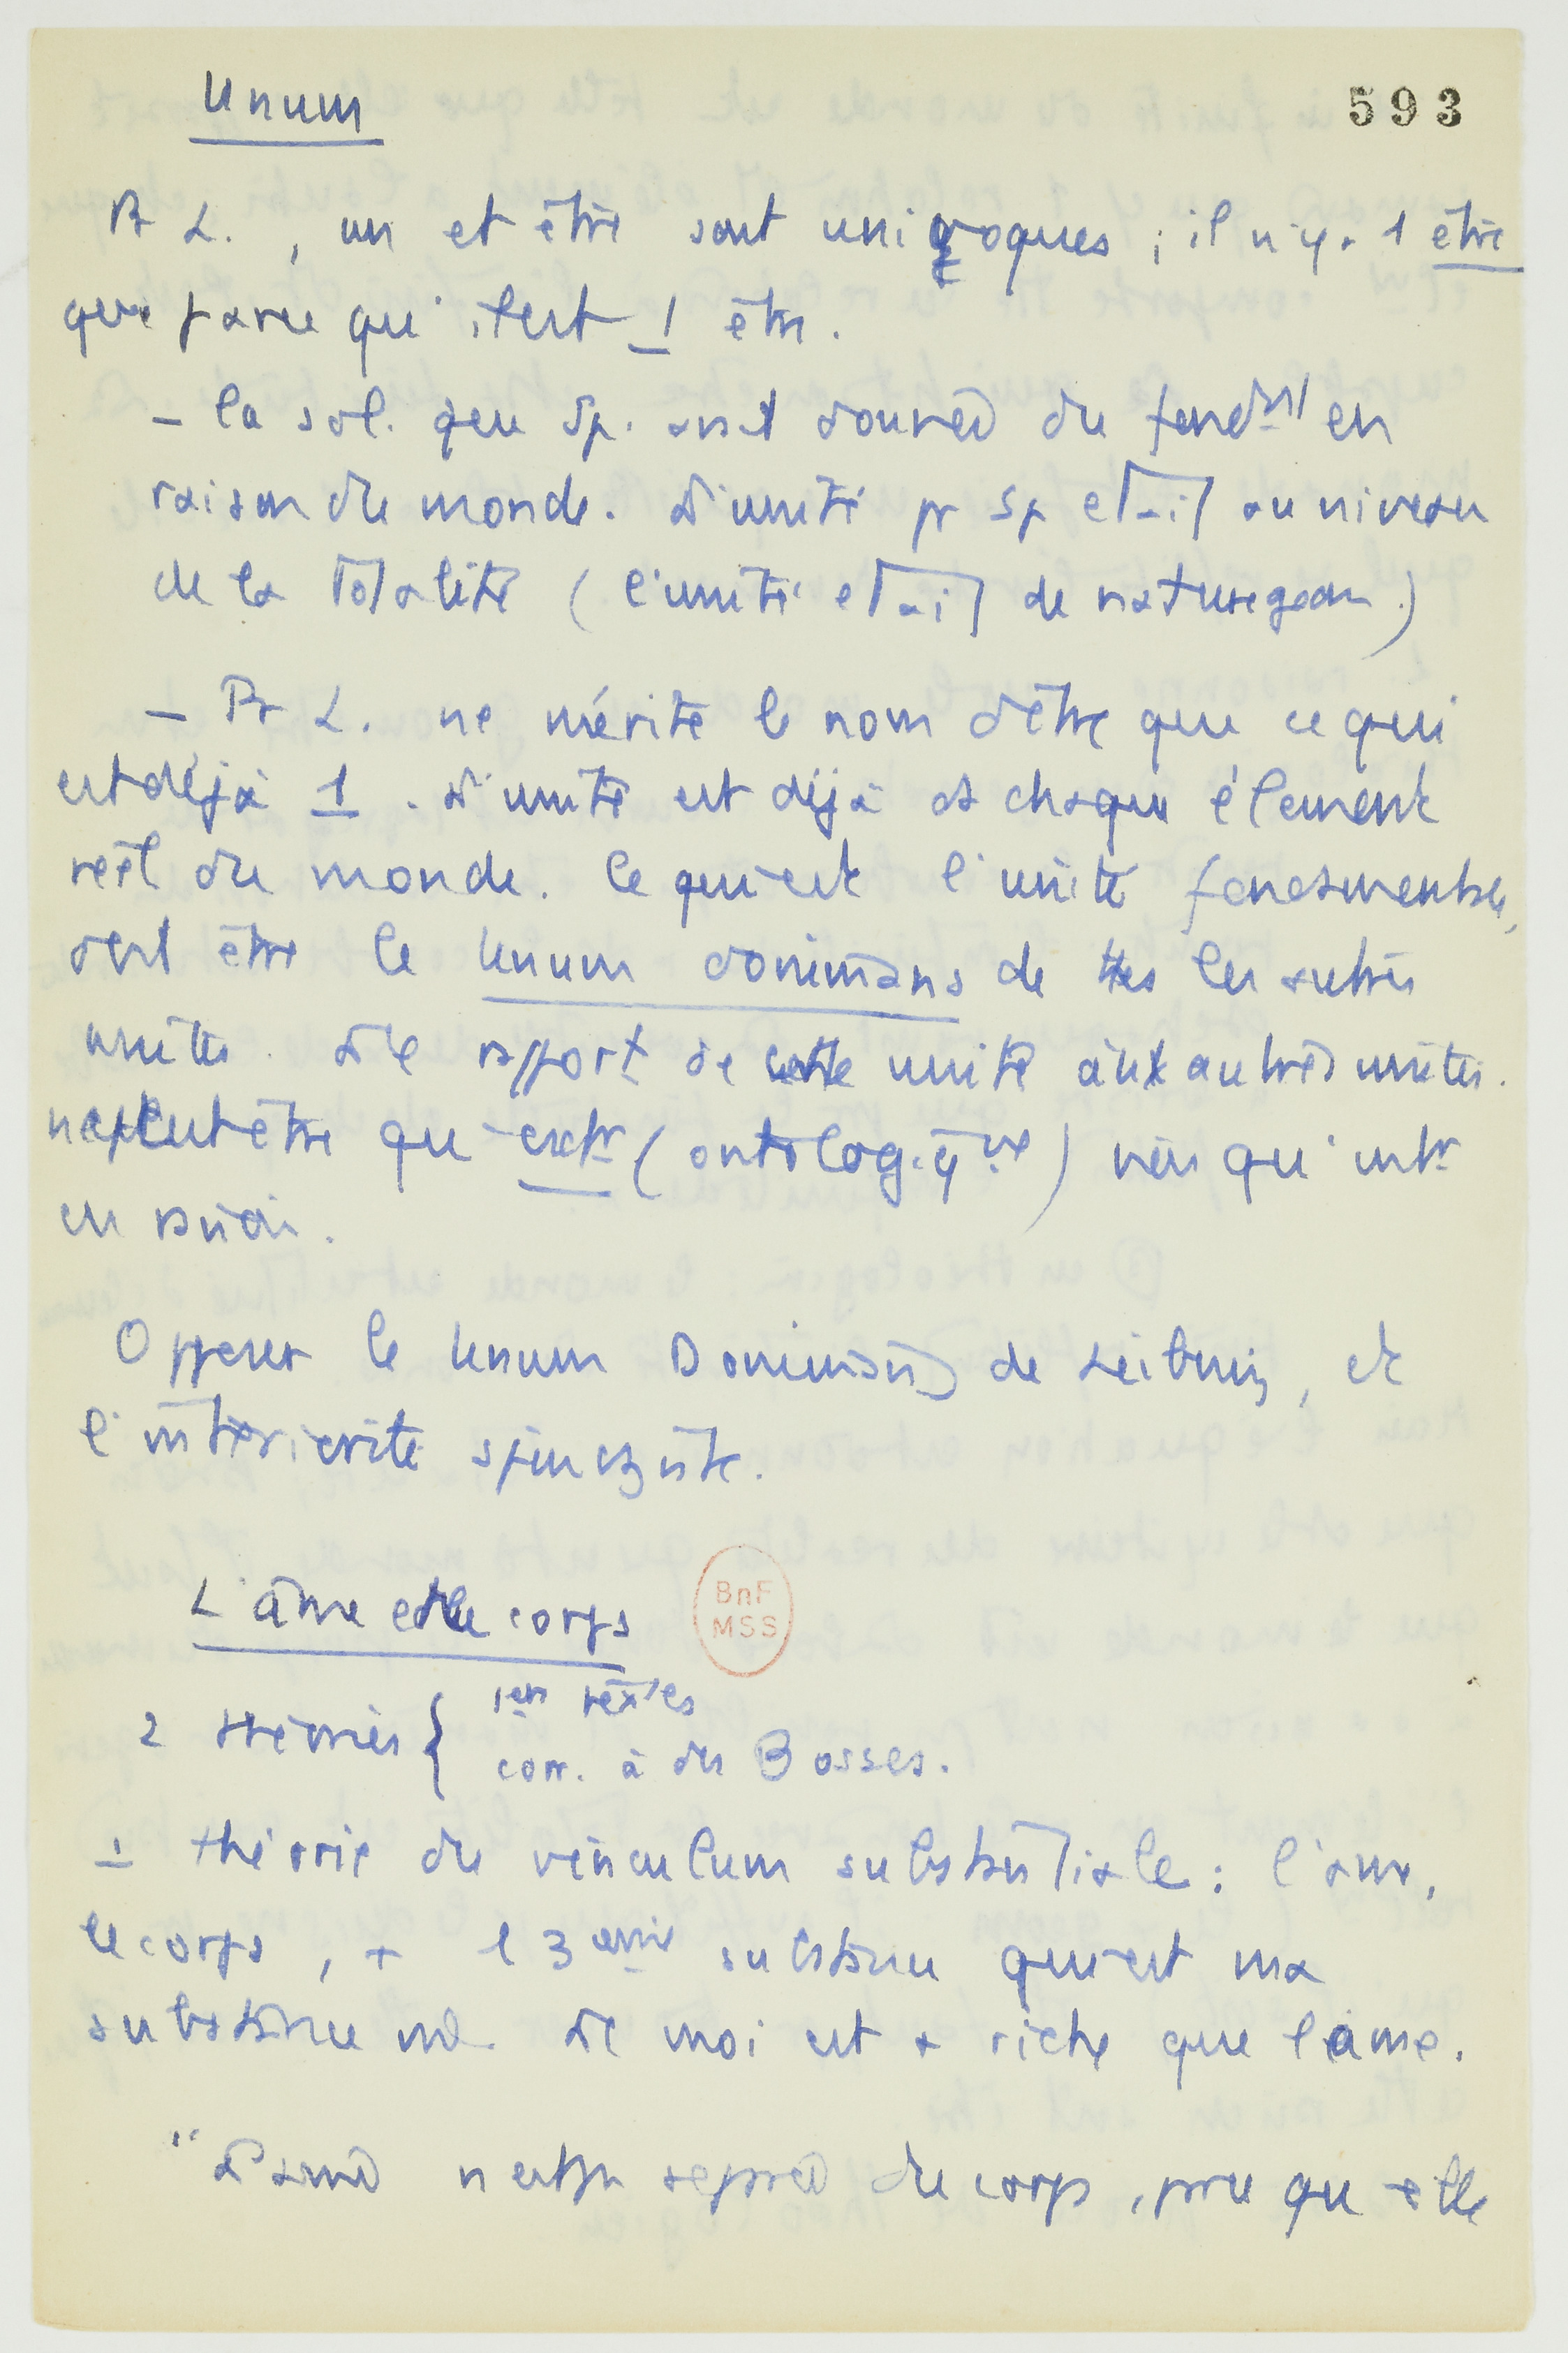 Unum
593
Pr L., un et être sont univoques ; il n'y a 1 être
que parce qu'il est 1 être.
– la sol. que Sp. avait donnée du fondmt en
raison du monde. L'unité pr Sp était au niveau
de la totalité (l'unité était de nature géom.)
– Pr L. ne mérite le nom d'être que ce qui
est déjà 1. L'unité est déjà ds chaque élément
réel du monde. Ce qui est l'unité fondamentale,
doit être le Unum dominans de ttes les autres
unités. Le rapport de cette unité aux autres unités
ne peut être qu'extr (ontolog.qut) rien qu'intr
en
Opposer le Unum Dominans de Leibniz, et
l'intériorité spinoziste.
L'âme et le corps
BnF
MSS
2 théories { 1ers textes
corr. à des Bosses.
1 théorie du vinculum substantiale : l'âme,
le corps, + 1 3eme substance qui est ma
substance Le moi est + riche que l'âme.
"L'âme n'est pas séparée du corps, parce qu'elle